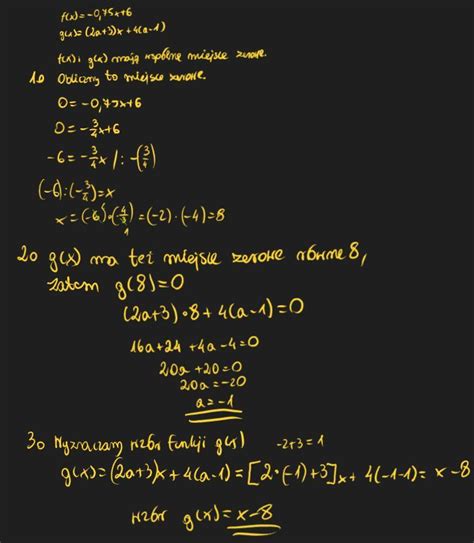 f(x)=-0,75x+6
g(x)=(2a+3)x+4(a-1)
f(x) i g(x) mają wspólne miejsce zerowe.
1o Obliczmy to miejsce zerowe.
0=-0,75x+6
0=-3/4x+6
-6=-3/4x /:-(3/4)
(-6):(-3/4)=x
x=(-6)·(4/3)=(-2)·(-4)=8
1
2o g(x) ma też miejsce zerowe równe 8,
zatem g(8)=0
(2a+3)·8+4(a-1)=0
16a+24+4a-4=0
20a+20=0
20a=-20
a=-1
3o Wyznaczam wzór funkcji g(x)
-2+3=1
g(x)=(2a+3)x+4(a-1)=[2·(-1)+3]x+4(-1-1)=x-8
wzór g(x)=x-8